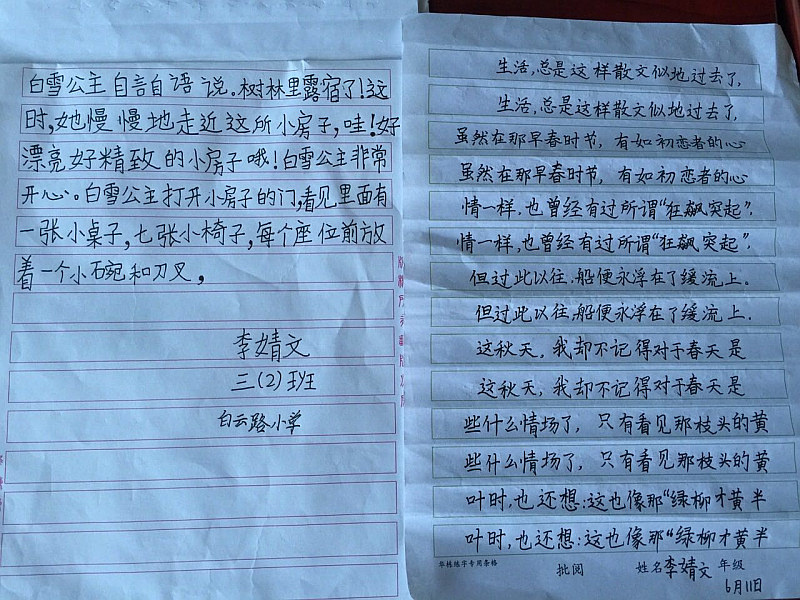 白雪公主自言自语说。树林里露宿了!这
时,她慢慢地走近这所小房子,哇!好
漂亮好精致的小房子哦!白雪公主非常
开心。白雪公主打开小房子的门,看见里面有
一张小桌子,七张小椅子,每个座位前放
着一个小碗和刀叉,
李婧文
三(2)班
白云路小学
生活,总是这样散文似地过去了,
生活,总是这样散文似地过去了,
虽然在那早春时节,有如初恋者的心
虽然在那早春时节,有如初恋者的心
情一样,也曾经有过所谓“狂飙突起”.
情一样,也曾经有过所谓“狂飙突起”.
但过此以往,船便永浮在了缓流上。
但过此以往,船便永浮在了缓流上.
这秋天,我却不记得对于春天是
这秋天,我却不记得对于春天是
些什么情场了,只有看见那枝头的黄
些什么情场了,只有看见那枝头的黄
叶时,也还想:这也像那“绿柳才黄半
叶时,也还想:这也像那“绿柳才黄半
华栋练字专用条格 批阅 姓名李婧文 年级
6月11日